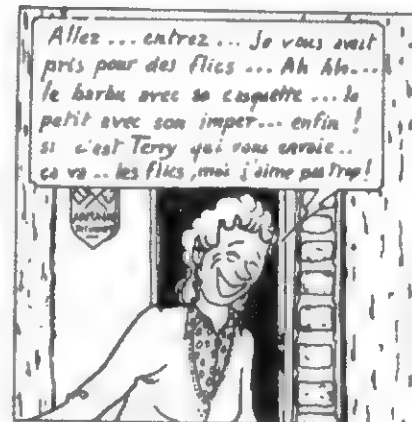 Allez ... entrez ... Je vous avait
pris pour des flics ... Ah Ah...
le barbu avec sa casquette ... le
petit avec son imper... enfin !
si c'est Terry qui vous envoie..
ca va .. les flics, moi j'aime pas trop!